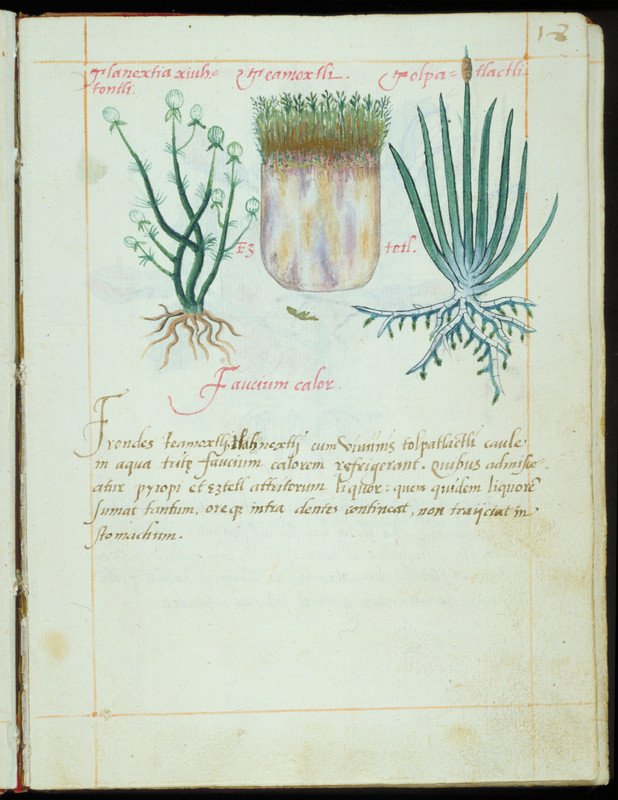 18
Tlanextia xiuh=
tontli.
Teamoxtli.
Tolpa= tlactli
Ez tetl.
Faucium calor.
Frondes teamoxtli, tlahnextij cum viuiinis tolpatlactli caule
in aqua tritę faucium calorem refrigerant. Quibus admisce-
atur pyropi et ęztetl attritorum liquor: quem quidem liquorē
sumat tantum, oreq; intra dentes contineat, non traijciat in
stomachum.